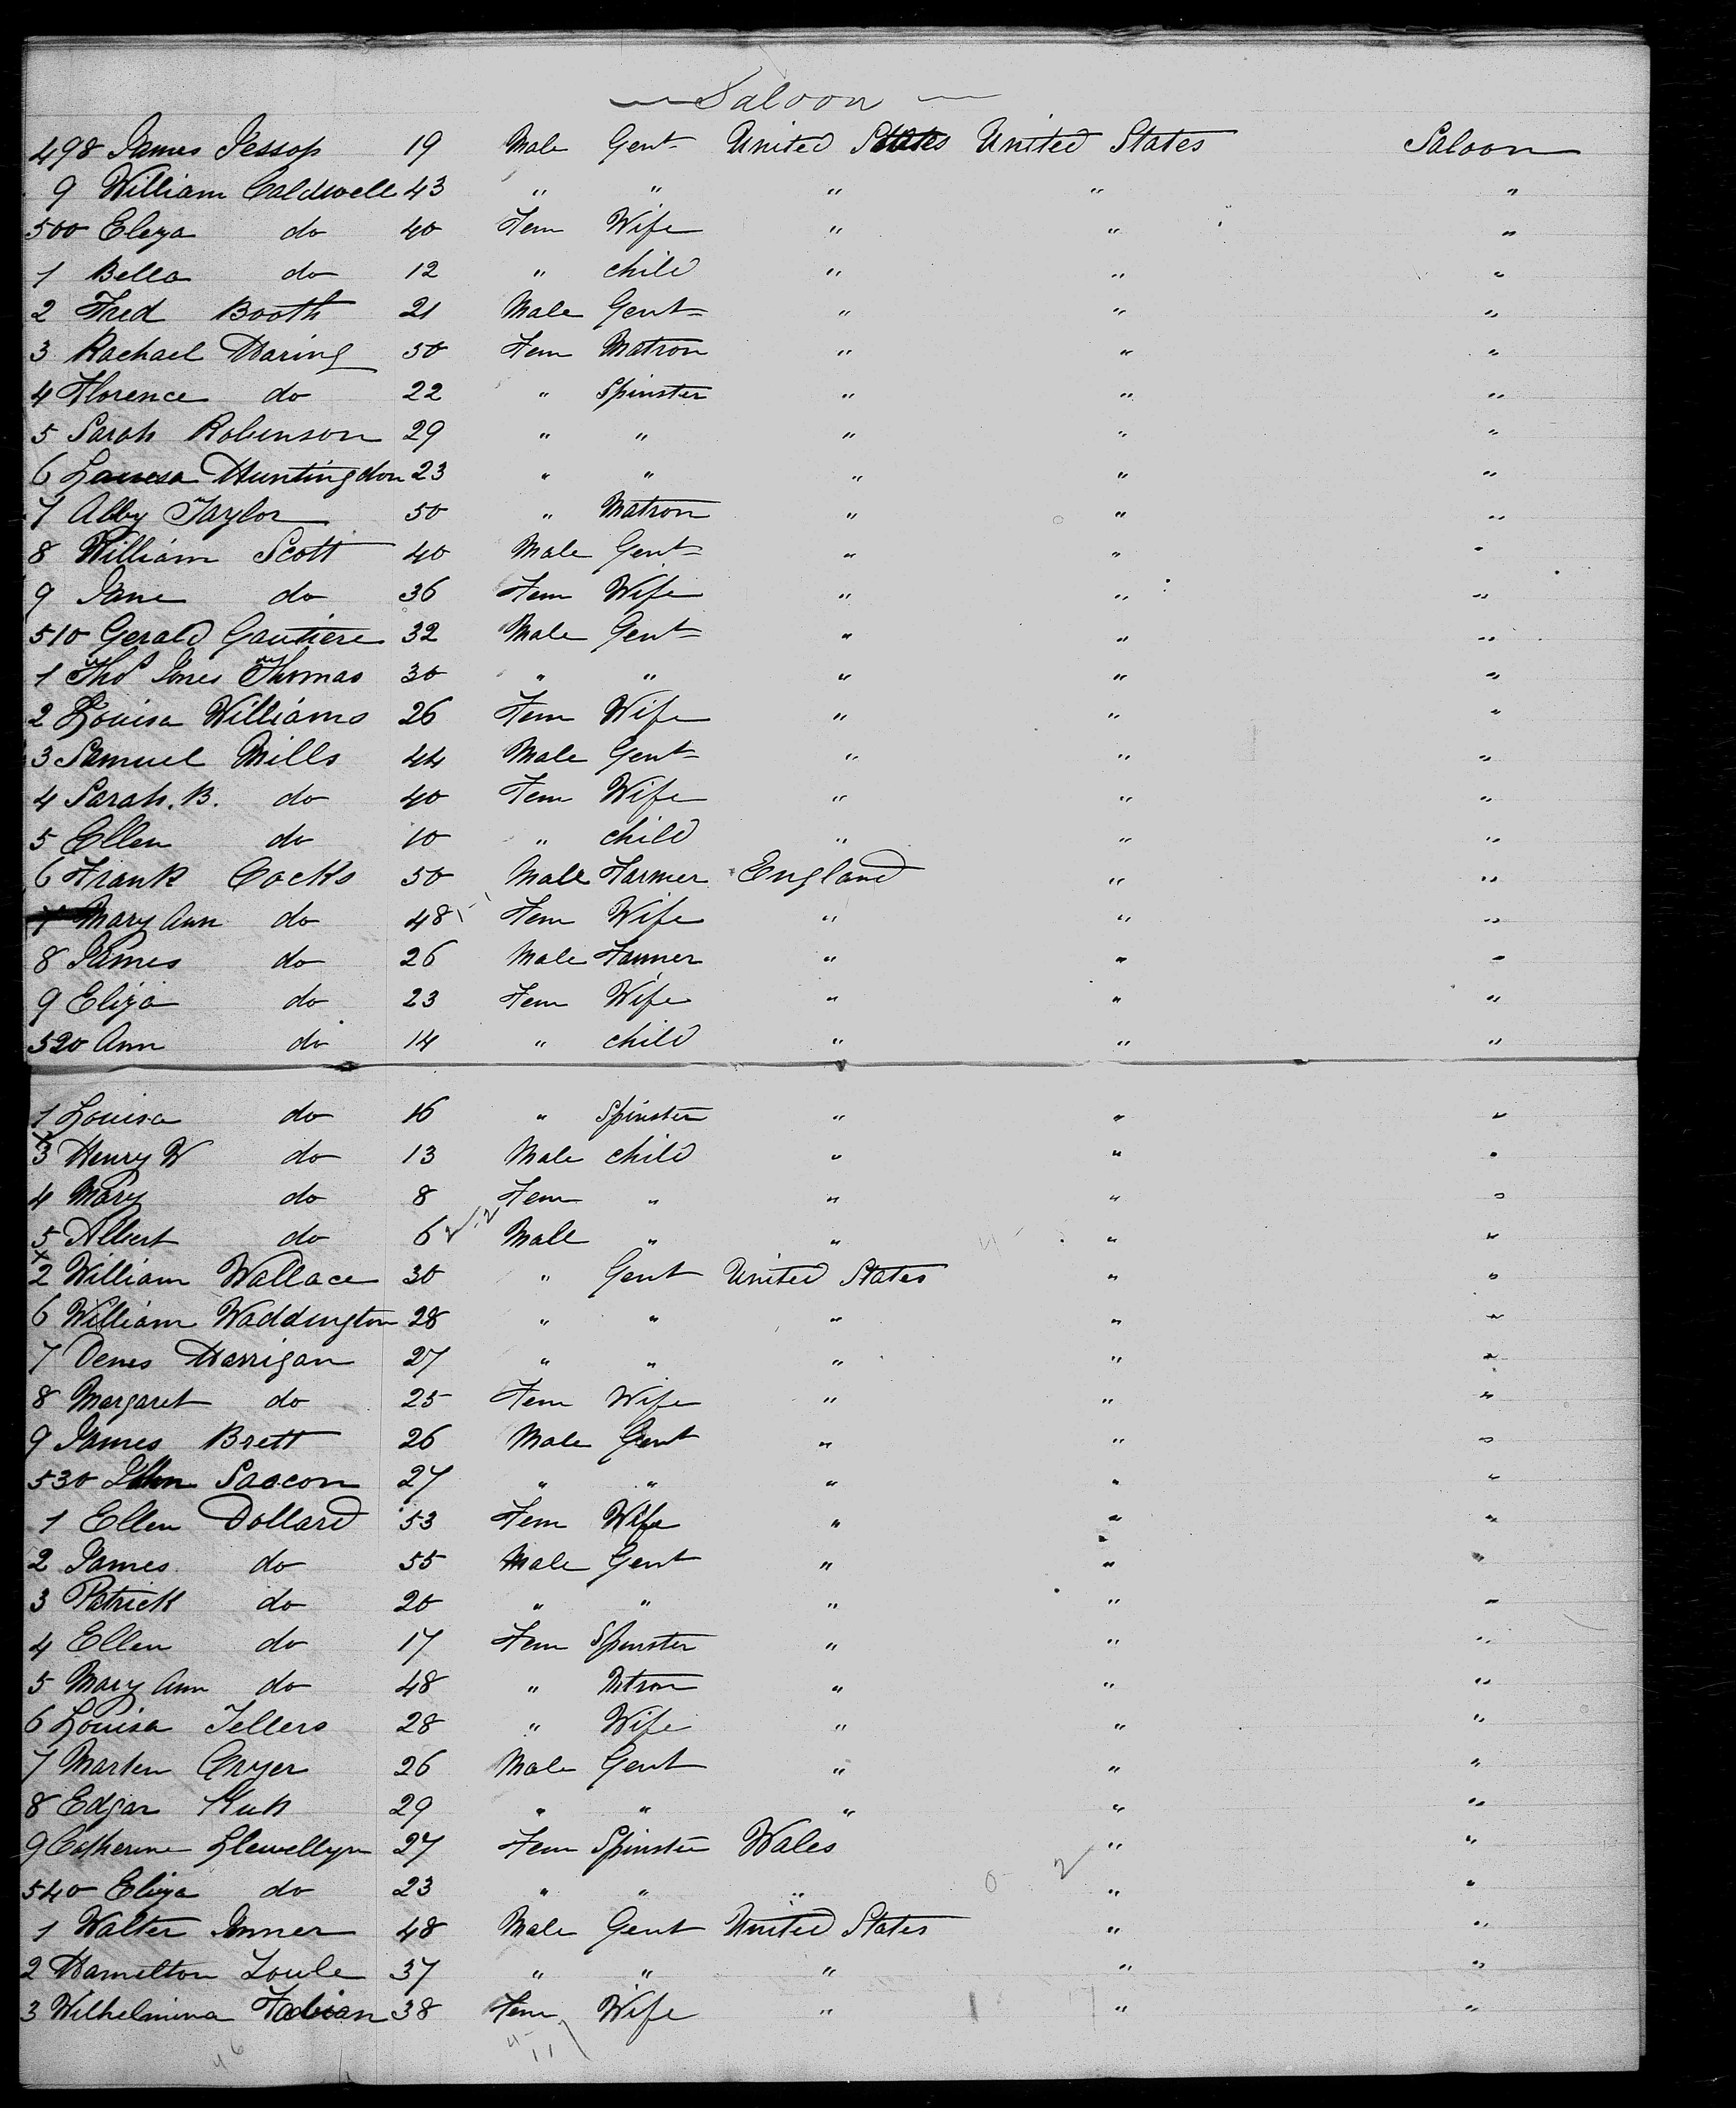 Saloon
498 James Jessop 19 Male Gent United States United States Saloon
9 William Caldwell 43 " " " " "
500 Eliza do 40 Fem Wife " " "
1 Bella do 12 " child " " "
2 Fred Booth 21 Male Gent " " "
3 Rachael Haring 50 Fem Matron " " "
4 Florence do 22 " Spinster " " "
5 Sarah Robinson 29 " " " " "
6 Huntingdon 23 " " " " "
7 Abby Taylor 50 " Matron " " "
8 William Scott 40 Male Gent " " "
9 Jane do 36 Fem Wife " " "
510 Gerald Gautiere 32 Male Gent " " "
1 Thos Jones Thomas 30 " " " " "
2 Louisa Williams 26 Fem Wife " " "
3 Samuel Mills 44 Male Gent " " "
4 Sarah. B. do 40 Fem Wife " " "
5 Ellen do 10 " child " " "
6 Frank Cocks 50 Male Farmer England " "
7 Mary Ann do 48 Fem Wife " " "
8 James do 26 Male Farmer " " "
9 Eliza do 23 Fem Wife " " "
520 Ann do 14 " child " " "
1 Louisa do 16 " Spinster " " "
x3 Henry W do 13 Male child " " "
4 Mary do 8 Fem " " " "
5 Albert do 6 Male " " " "
x2 William Wallace 30 " Gent United States " "
6 William Waddington 28 " " " " "
7 Denis Harrigan 27 " " " " "
8 Margaret do 25 Fem Wife " " "
9 James Brett 26 Male Gent " " "
530 John Saocon 27 " " " " "
1 Ellen Dollard 53 Fem Wife " " "
2 James do 55 Male Gent " " "
3 Patrick do 20 " " " " "
4 Ellen do 17 Fem Spinster " " "
5 Mary Ann do 48 " Mtron " " "
6 Louisa Jellers 28 " Wife " " "
7 Marten Cryer 26 Male Gent " " "
8 Edgar 29 " " " " "
9 Catherine Llewellyn 27 Fem Spinster Wales " "
540 Eliza do 23 " " " " "
1 Walter 48 Male Gent United States " "
2 Hamilton Soule 37 " " " " "
3 Wilhelmina Fabian 38 Fem Wife " " "
46